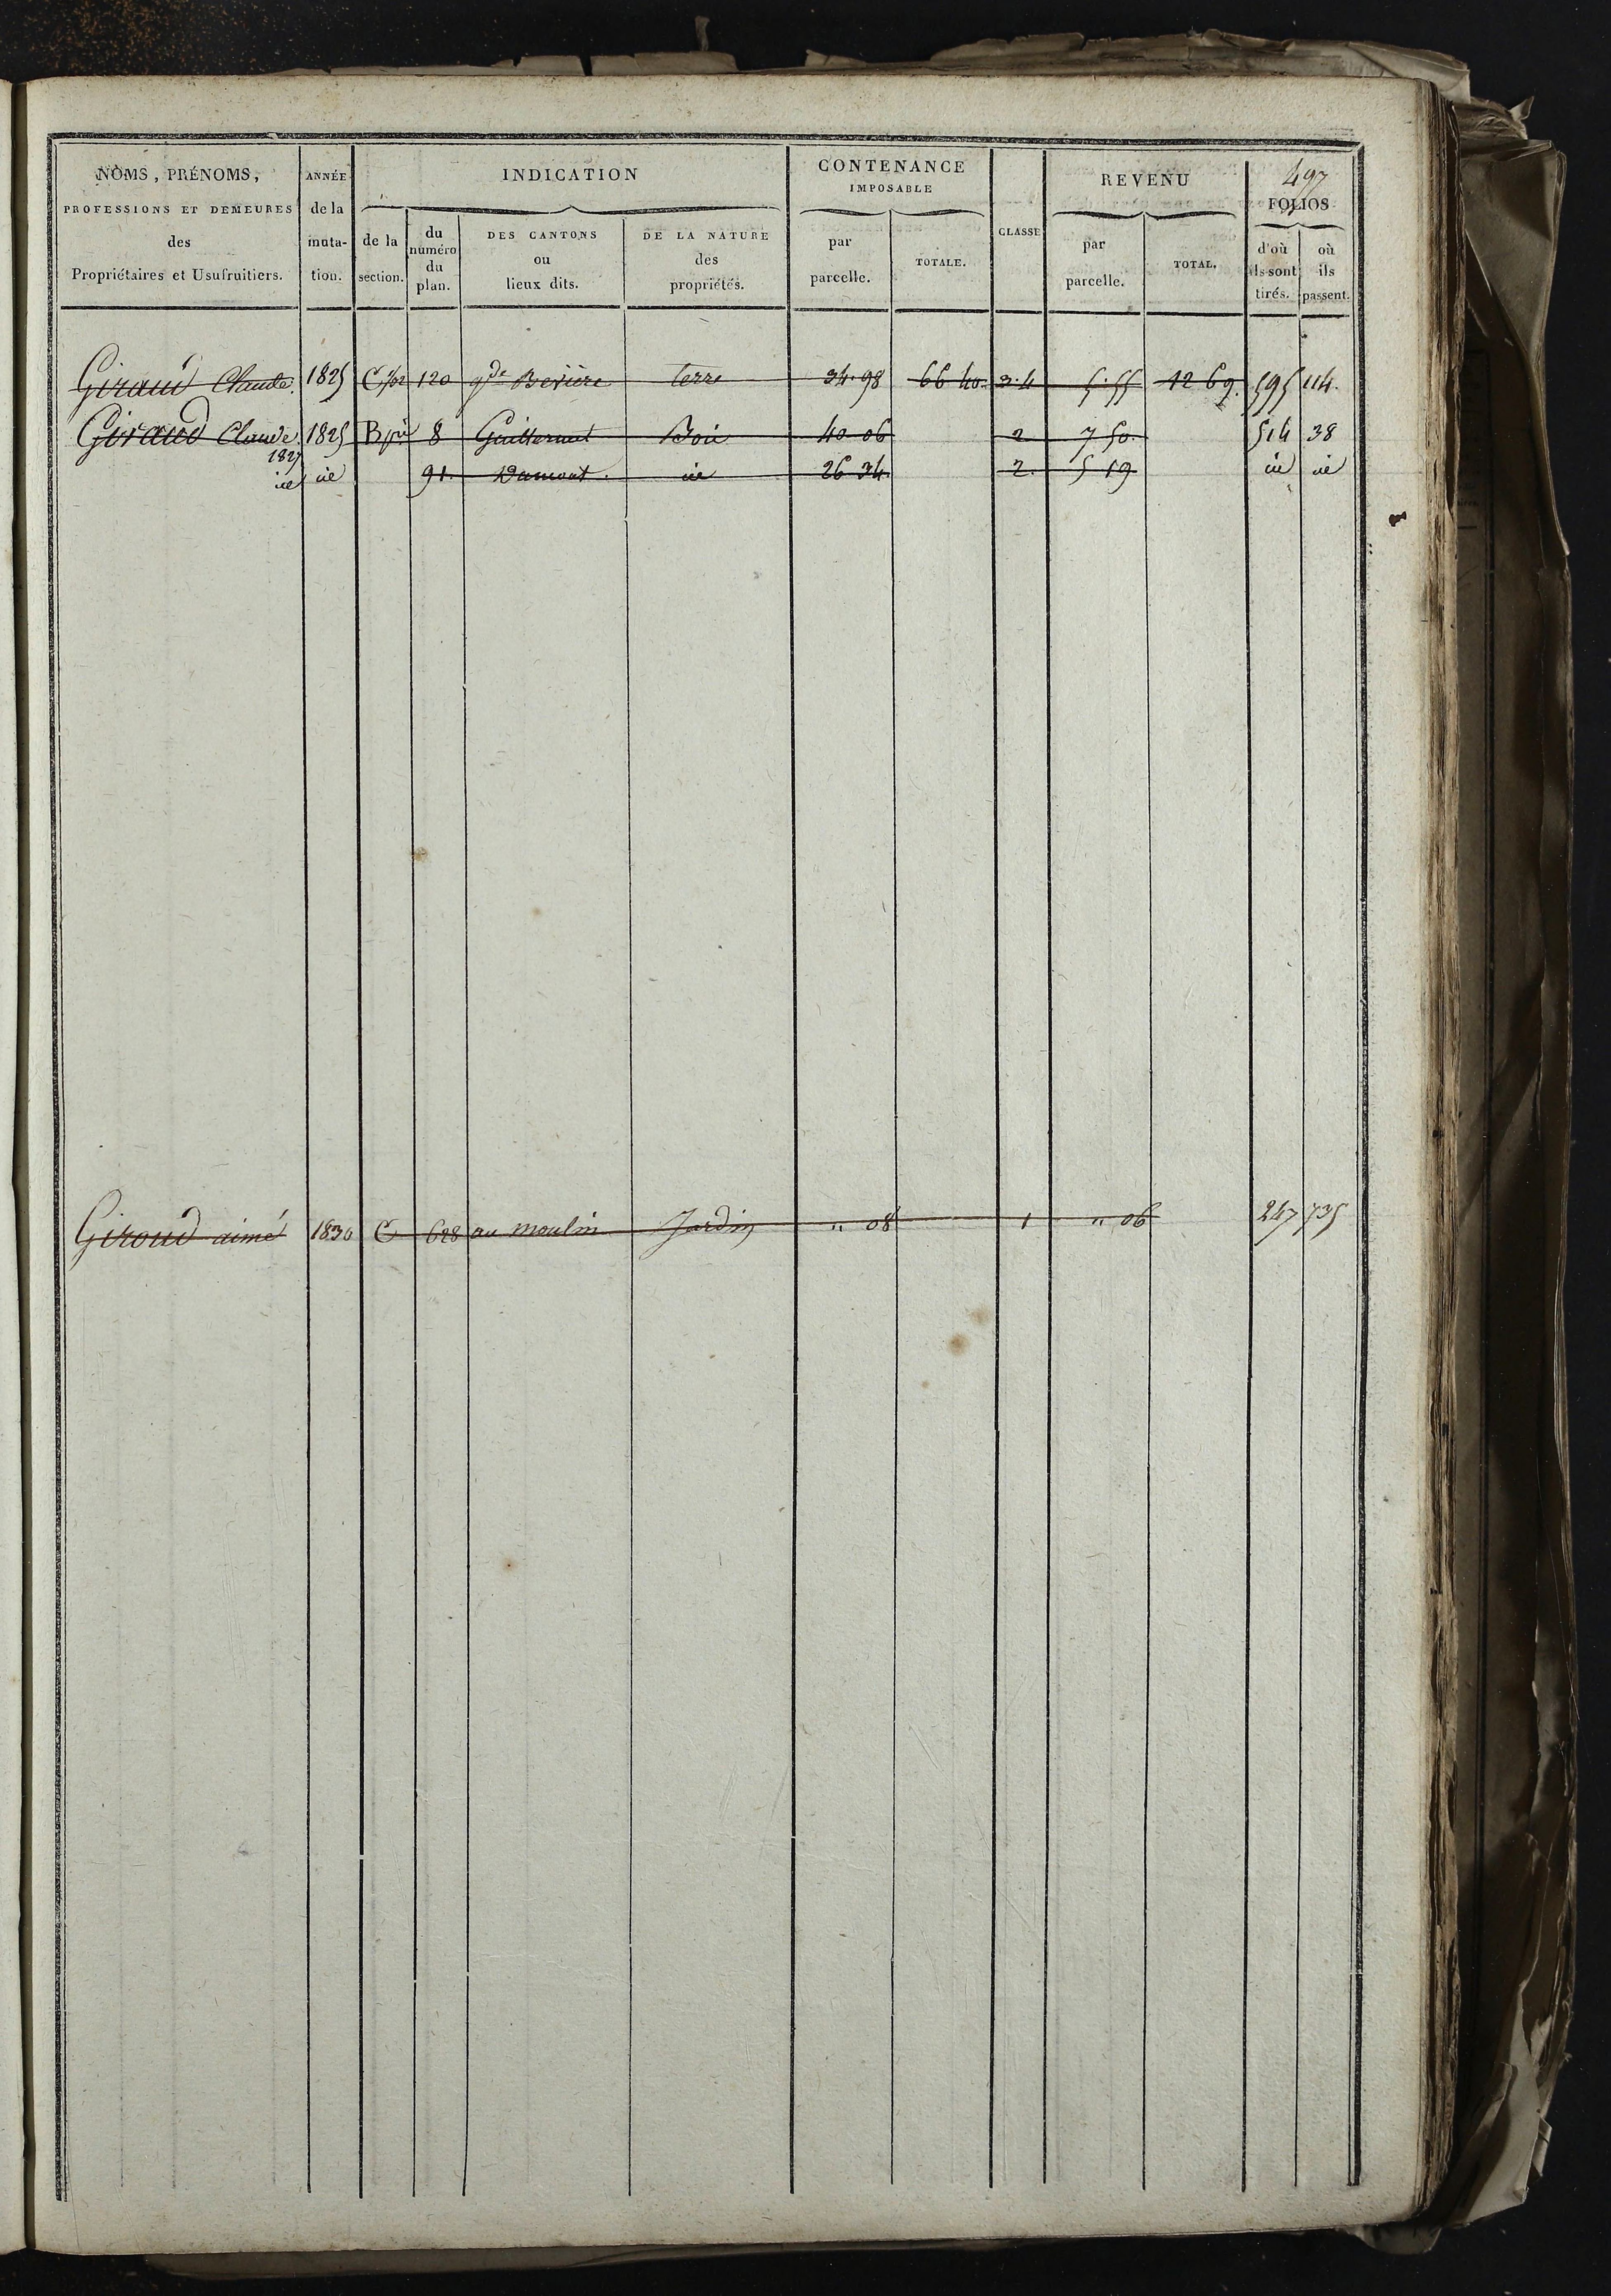 497
NOMS, PRÉNOMS, PROFESSIONS ET DEMEURES des Propriétaires et Usufruitiers.
ANNÉE de la muta-tion.
INDICATION
de la section.
du numéro du plan.
DES CANTONS ou lieux dits.
DE LA NATURE des propriétés.
CONTENANCE IMPOSABLE
par parcelle.
TOTALE.
CLASSE
REVENU
par parcelle.
TOTAL.
FOLIOS
d'où ils sont tirés.
où ils passent.
Giraud Claude. 1825 120 gde terre 34.98 66 40. 3.4 5.55 12 69. 595 114.
Giraud Claude 1825 8 Bois 40 06 2 7 50. 514 38
1827
id id 91. Damont. id 26 34. 2. 5 19 id id
Giroud aimé 1830 C 628 au moulin Jardin " 08 1 " 06 247 735